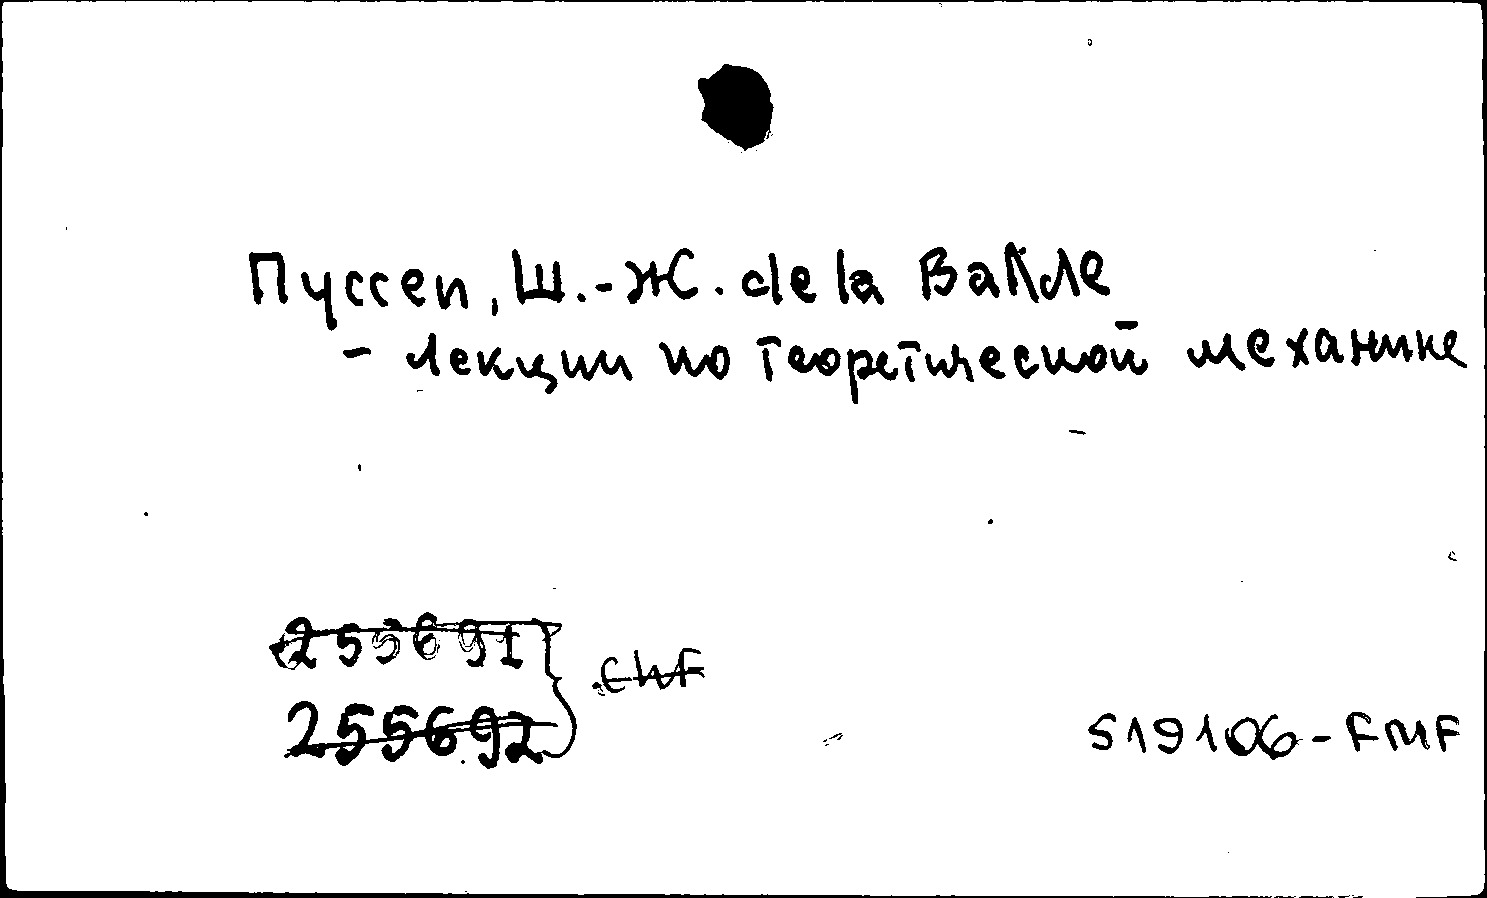 Пуссеп, Ш.-Ж. de la Валле
- Лекции по теоретической механике
255691
255692
519106-FMF